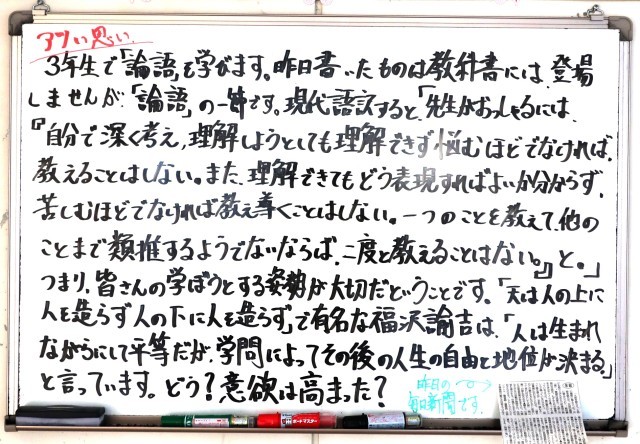 アツい思い
3年生で「論語」を学びます。昨日書いたものは教科書には、登場
しませんが「論語」の一節です。現代語訳すると、「先生がおっしゃるには、
『自分で深く考え、理解しようとしても理解できず悩むほどでなければ、
教えることはしない。また、理解できてもどう表現すればよいか分からず、
苦しむほどでなければ教え導くことはしない。一つのことを教えて、他の
ことまで類推するようでないならば、二度と教えることはない。』と。」
つまり、皆さんの学ぼうとする姿勢が大切だということです。「天は人の上に
人を造らず人の下に人を造らず」で有名な福沢諭吉は、「人は生まれ
ながらにして平等だが、学問によってその後の人生の自由と地位が決まる」
と言っています。どう？意欲は高まった？
昨日の
毎日新聞です。
ボードマスター